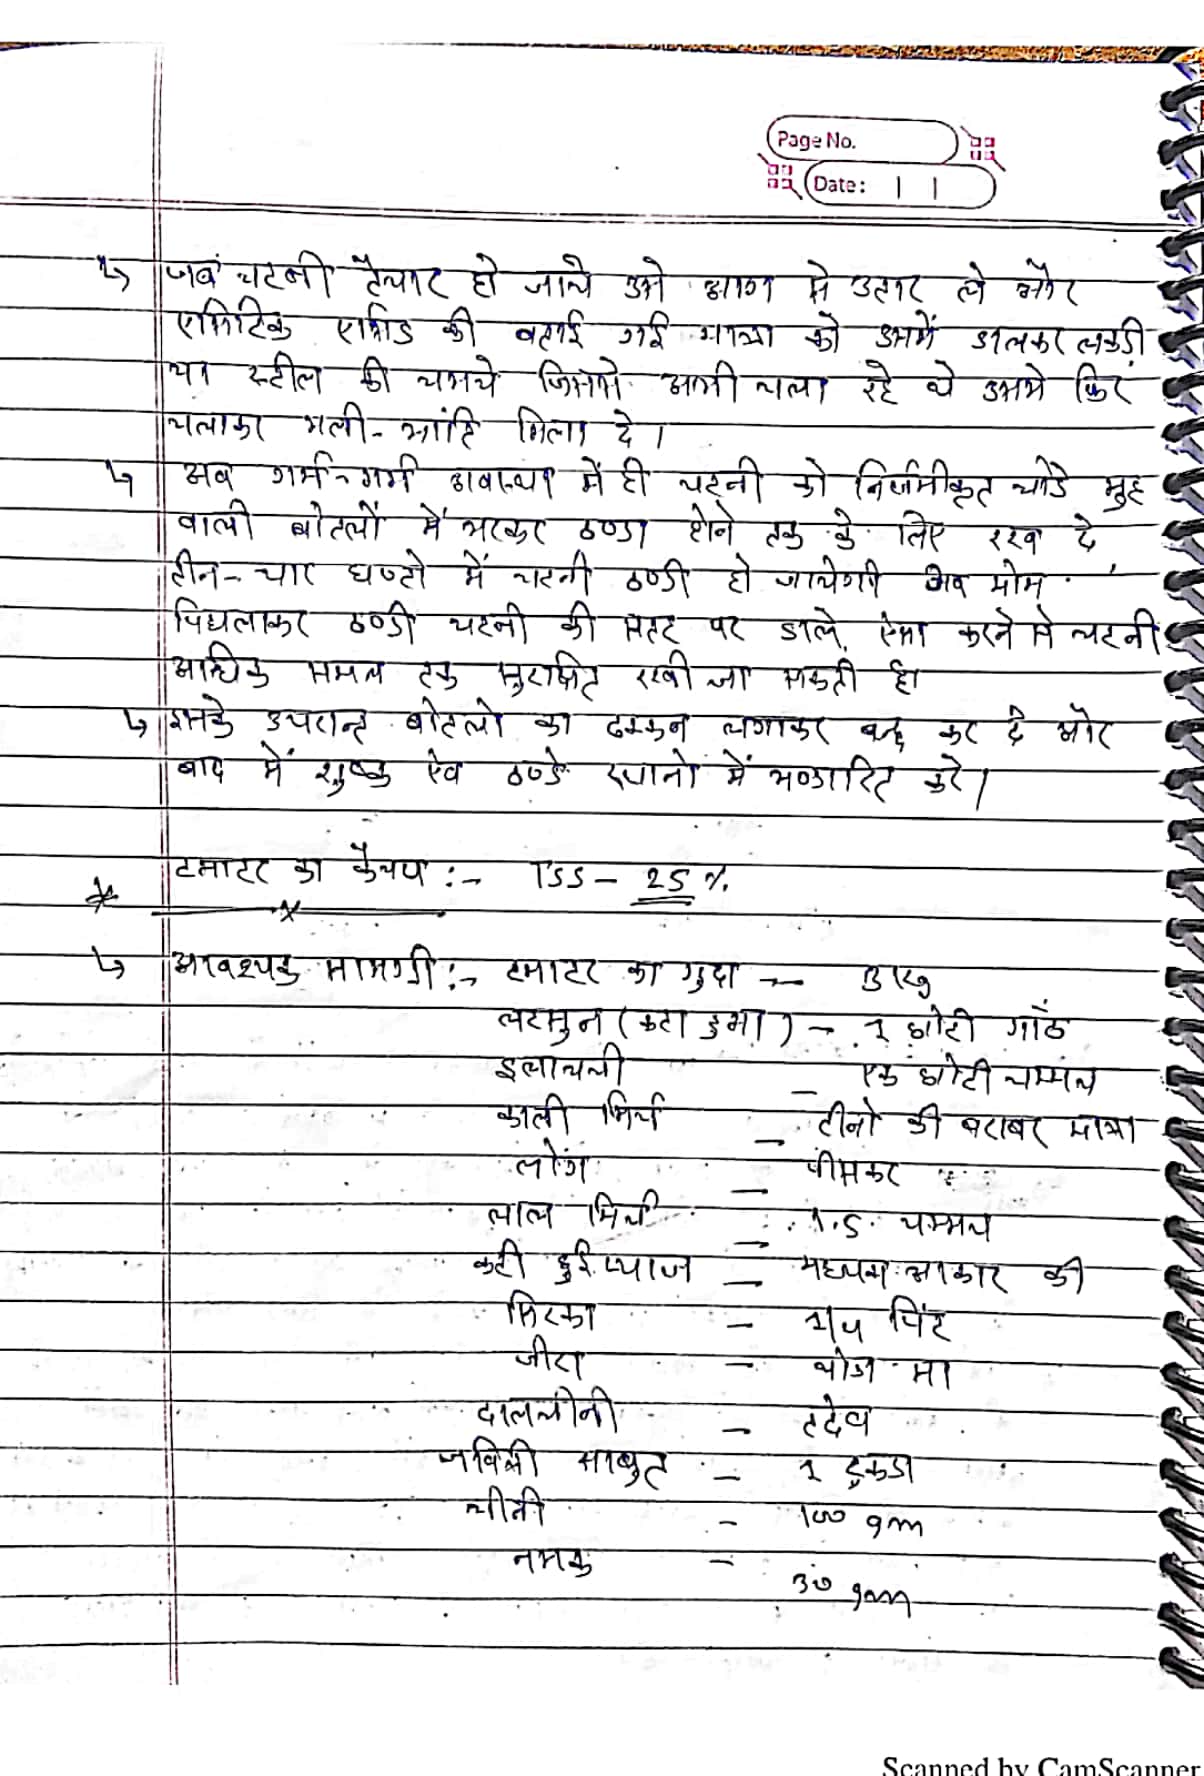 Page No.
Date: | |
↳ जब चटनी तैयार हो जाये उसे आग से उतार ले और
एसिटिक एसिड की बताई गई मात्रा को उसमें डालकर लकड़ी
या स्टील की चमचे जिससे अभी चला रहे थे उससे फिर
चलाकर भली-भांति मिला दे।
↳ अब गर्म-गर्म अवस्था में ही चटनी को निर्जमीकृत चोडे मुह
वाली बोतलों में भरकर ठण्डा होने तक के लिए रख दे
तीन-चार घण्टो में चटनी ठण्डी हो जायेगी अब मोम
पिघलाकर ठण्डी चटनी की सतह पर डाले, ऐसा करने से चटनी
अधिक समय तक सुरक्षित रखी जा सकती है।
↳ इसके उपरान्त बोतलो का ढक्कन लगाकर बन्द कर दे और
बाद में शुष्क ऐव ठण्डे स्थानो में भण्डारित करे।
* टमाटर का कैचप :- TSS - 25 %
↳ आवश्यक सामग्री :- टमाटर का गुदा - 3 kg
लहसुन (कटा हुआ) - 1 छोटी गाँठ
इलायची - एक छोटी चम्मच
काली मिर्च - तीनो की बराबर मात्रा
लोंग - पीसकर
लाल मिर्च - 1.5 चम्मच
कटी हुई प्याज - मध्यम आकार की
सिरका - 1/4 पिंट
जीरा - थोडा सा
दालचीनी - तदेव
जवित्री साबुत - 1 टुकडा
चीनी - 100 gm
नमक - 30 gm
Scanned by CamScanner